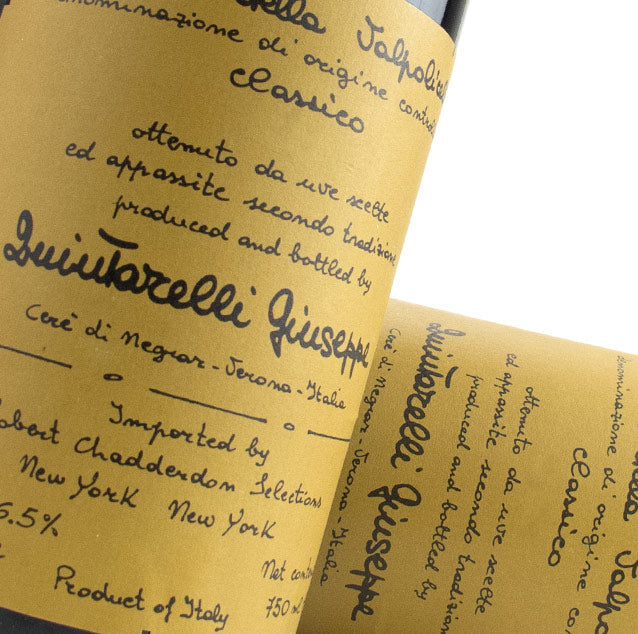 Valpolicella
denominazione di origine controllata
classico
ottenuto da uve scelte
ed appassite secondo tradizione
produced and bottled by
Quintarelli Giuseppe
Cerè di Negrar - Verona - Italia
Imported by
Robert Chadderdon Selections
New York New York
6.5%
Net
750
Product of Italy
classico
ottenuto da uve scelte
ed appassite secondo tradizione
produced and bottled by
Quintarelli Giuseppe
Cerè di Negrar - Verona - Italia